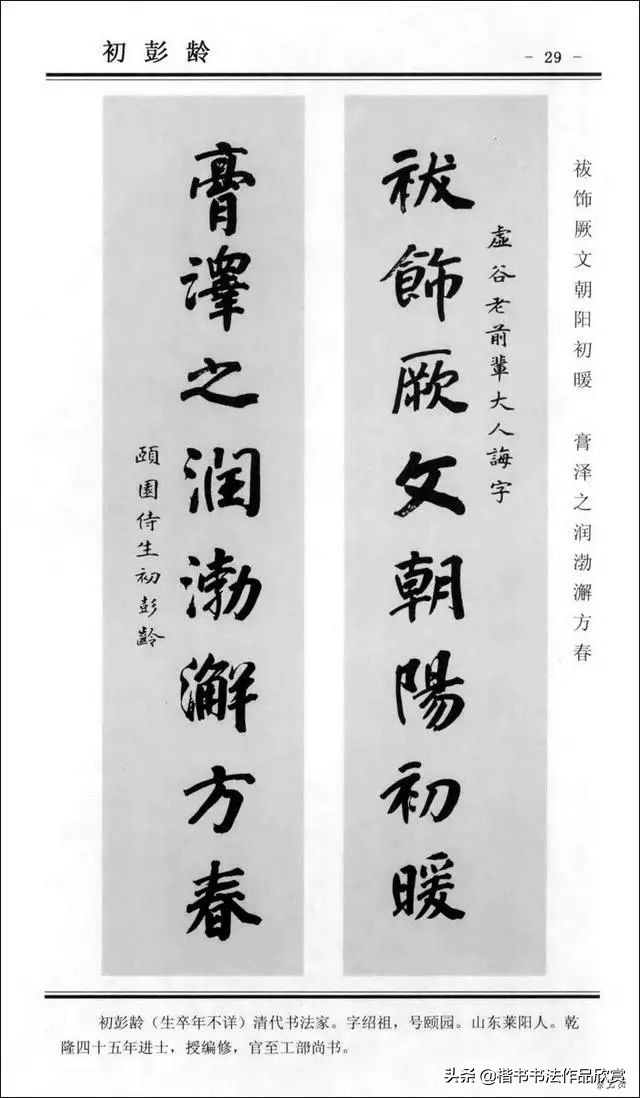 初彭龄
- 29 -
祓饰厥文朝阳初暖 膏泽之润渤澥方春
虚谷老前輩大人誨字
祓飾厥文朝陽初暖
膏澤之润渤澥方春
頤園侍生初彭齡
初彭龄（生卒年不详）清代书法家。字绍祖，号颐园。山东莱阳人。乾
隆四十五年进士，授编修，官至工部尚书。
头条 @楷书书法作品欣赏